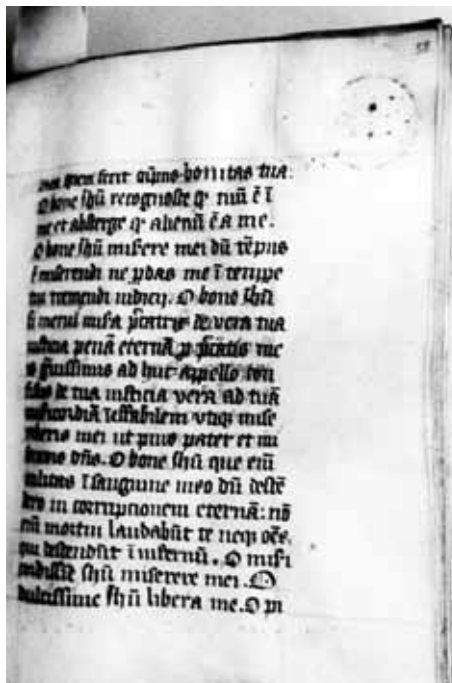 58
quem fecit omnipotens bonitas tua.
O bone ihū recognosce qͥ tuū ē ī
me et absterge qͥ alienū ē a me.
O bone ihū misere mei dū tēpus
ē miserendi ne pdas me ī tempe
tui tremendi iudicij. O bone ihū
si merui misa pccatrix de vera tua
iusticia penā eternā p pccatis me
is gͣuissimis ad huc appello con
fisus de tua iusticia vera ad tuā
ineffabilem vtiqꝫ mise
reberis mei ut pius pater et mi
dn̄s. O bone ihū que eīn
vtilitas ī sanguine meo dū descē
dero in corrupcionem eternā: nō
eīn mortui laudabūt te neqꝫ oēs
qui descendūt ī infernū. O misi
cordissīe ihū miserere mei. O
dulcissime ihū libera me. O pi